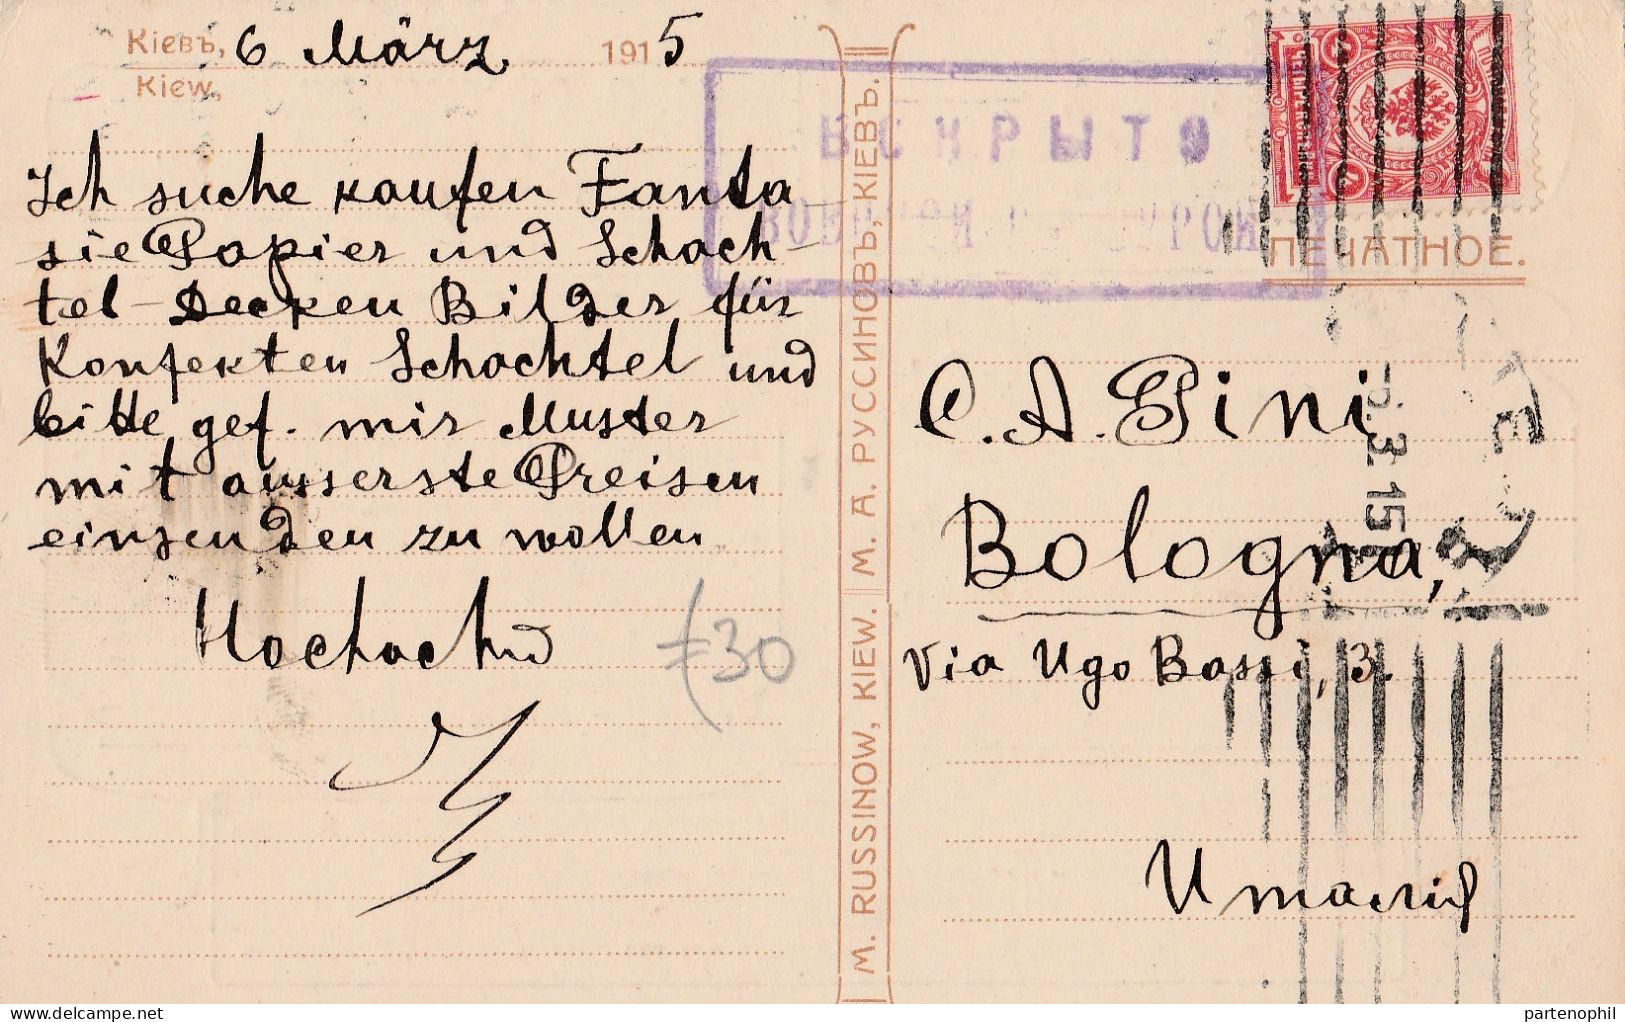 Кіевъ, 6 März 1915
Kiew,
Ich suche kaufen Fanta-
sie Papier und Schach-
tel-Decken Bilder für
Konfekten Schachtel und
bitte gef. mir Muster
mit äusserste Preisen
einsenden zu wollen
Hochacht
£30
М. RUSSINOW, KIEW. М. А. РУССИНОВЪ, КІЕВЪ.
ВСКРЫТО
ПЕЧАТНОЕ.
C. A. Pini
Bologna,
Via Ugo Bassi, 3.
Италия
3 15
partenophil